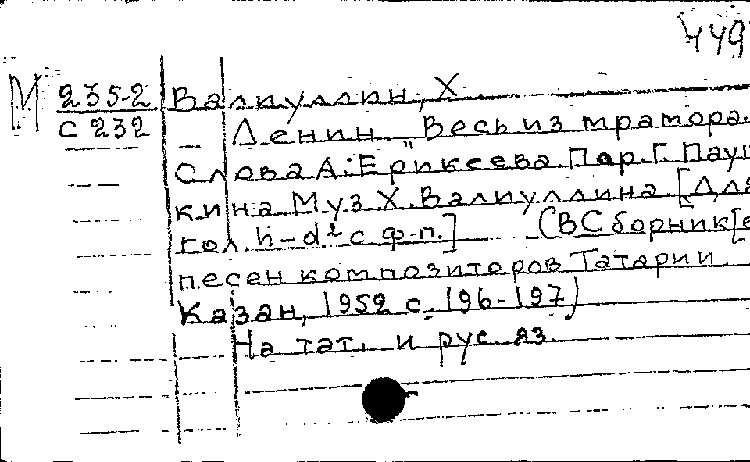 449
М 235-2 Валиуллин, Х
с 232 – Ленин „Весь из мрамора.
Слова А. Ерикеева Пер. Г. Пауш
кина Муз Х. Валиуллина [Для
гол. h-d² с ф-п.] (В Сборник[е
песен композиторов Татарии
Казан, 1952 с. 196-197)
На тат. и рус яз.